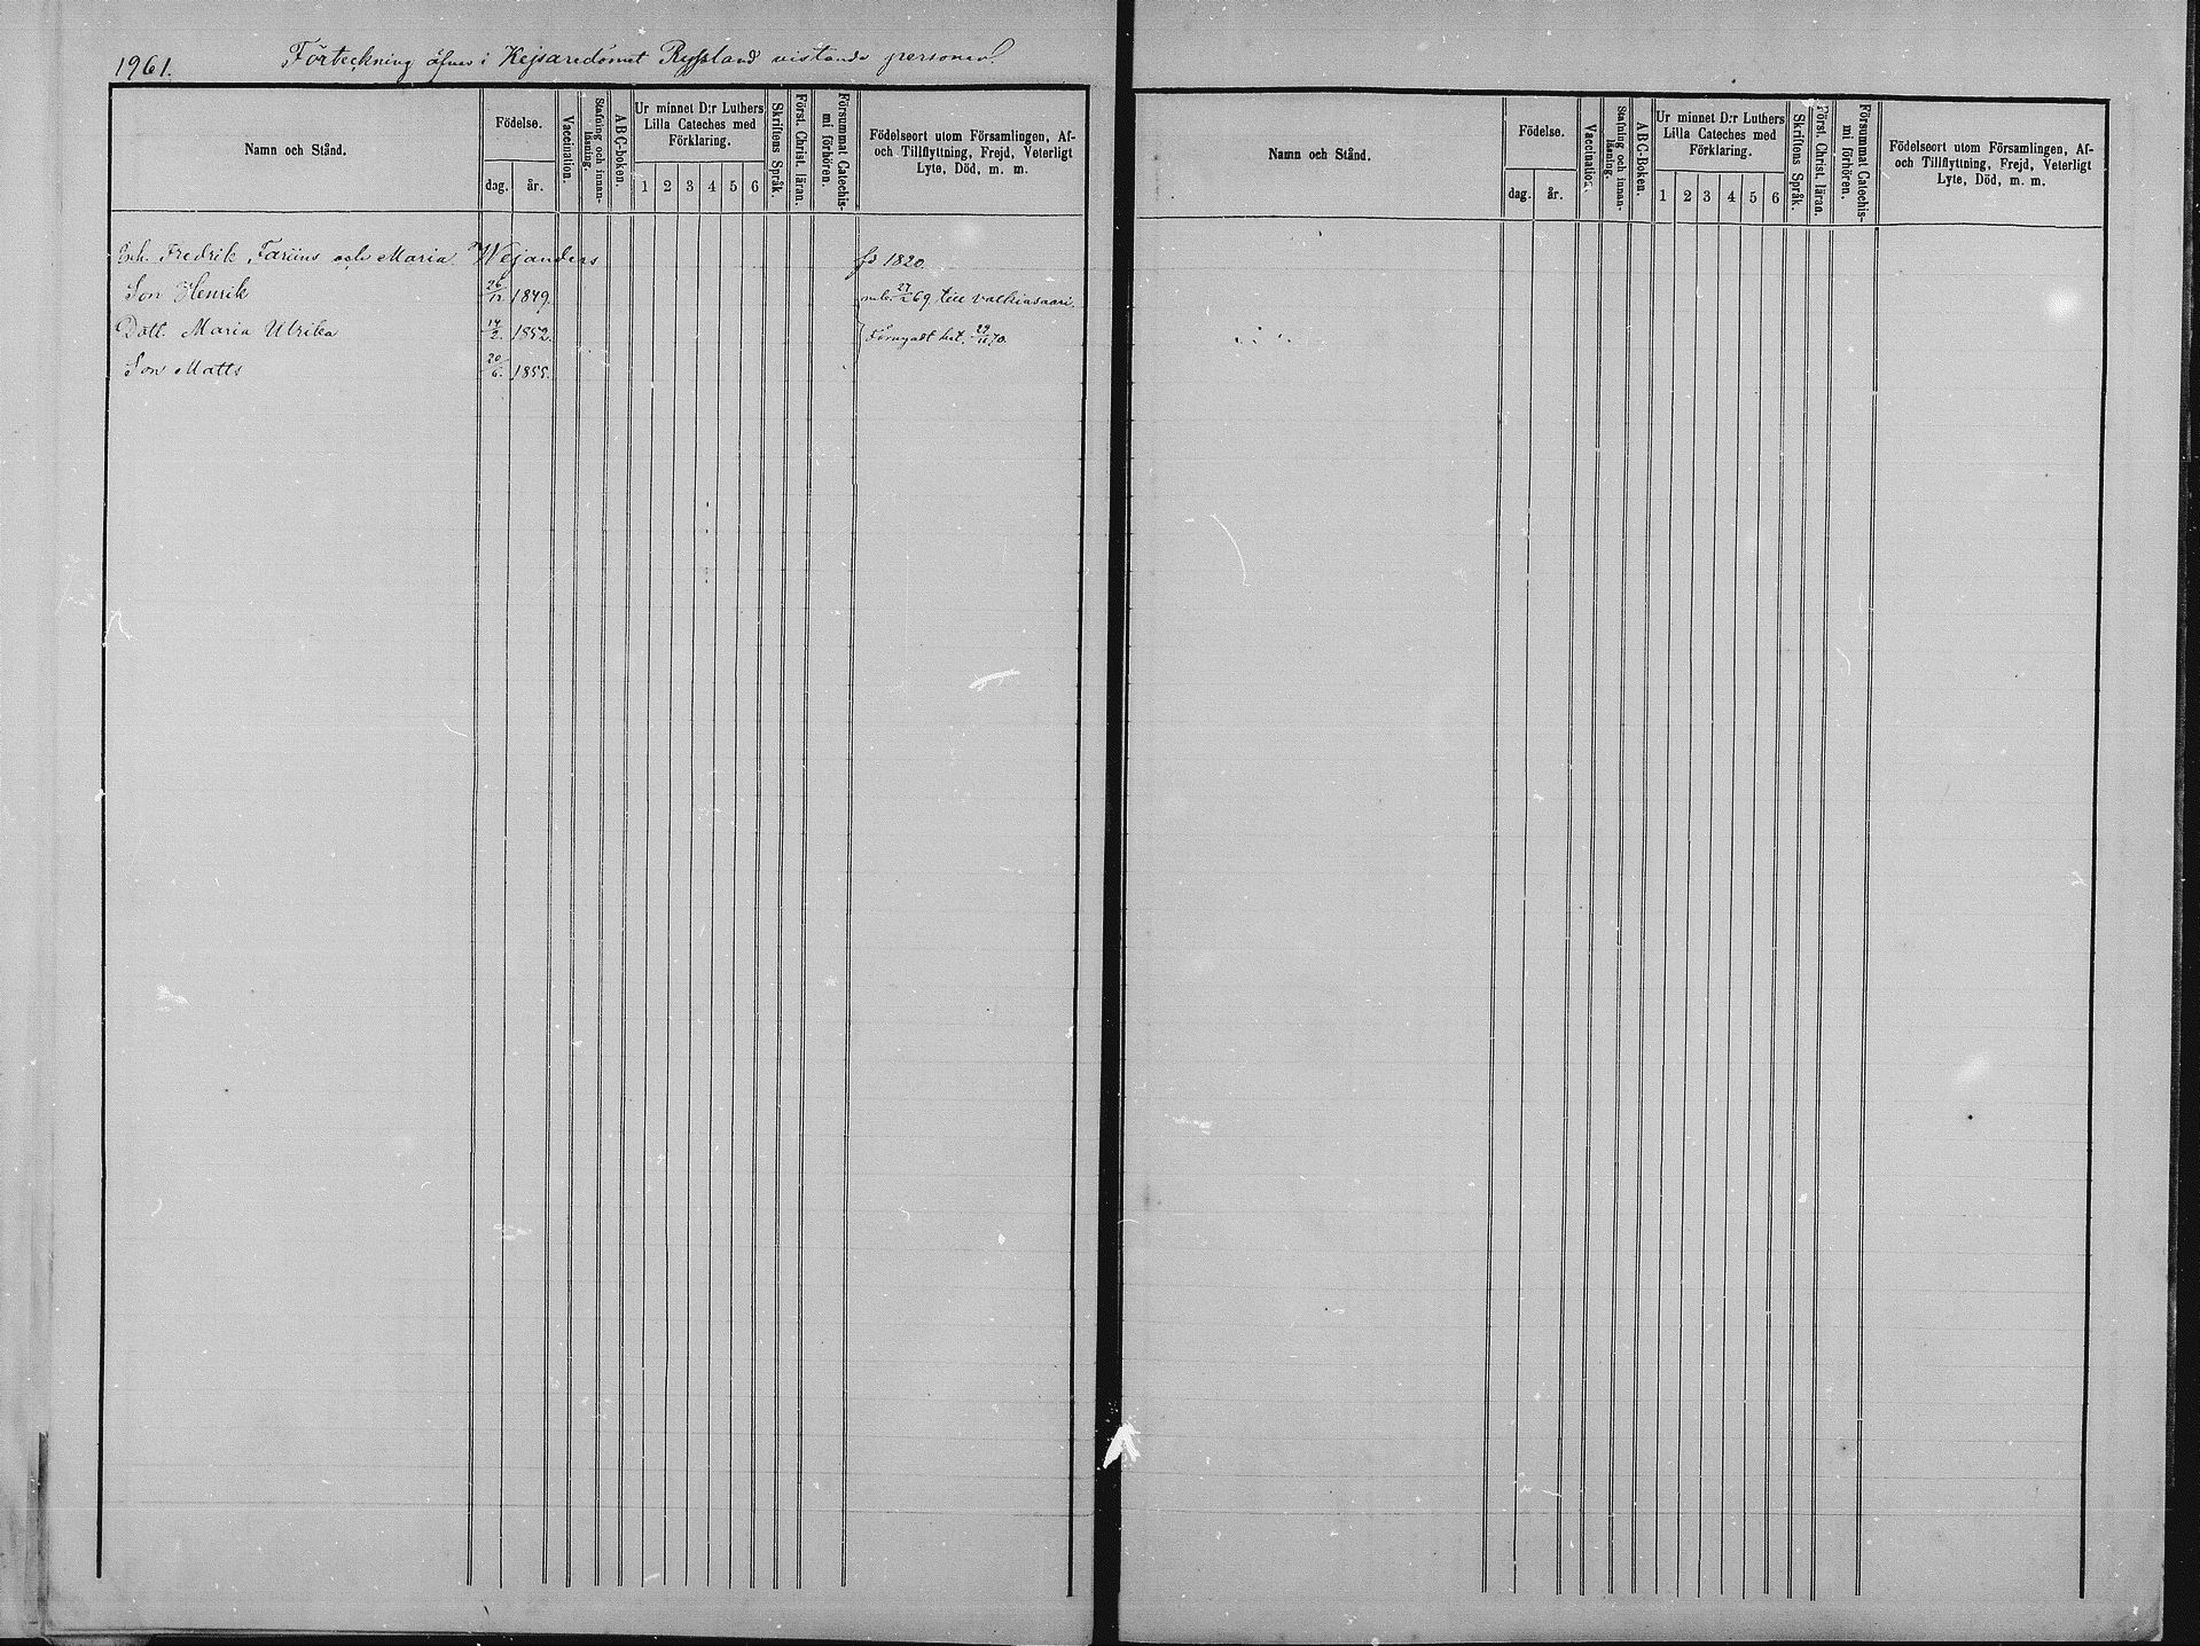 1961. Förteckning öfver i Kejsaredömet Ryssland vistande personer.
Namn och Stånd.
Födelse.
dag. år.
Vaccination.
Stafning och innanläsning.
ABC-boken.
Ur minnet D:r Luthers
Lilla Cateches med
Förklaring.
1 2 3 4 5 6
Skriftens Språk.
Först. Christ. läran.
Försummat Catechis-
mi förhören.
Födelseort utom Församlingen, Af-
och Tillflyttning, Frejd, Veterligt
Lyte, Död, m. m.
Enk. Fredrik Fariins och Maria Wejanders fd 1820.
Son Henrik 26/12 1849. 27/2 69 till Valkiasaari.
Dott. Maria Ulrika 14/2. 1852. Förnyadt bet. 29/11 70.
Son Matts 20/6. 1855.
Namn och Stånd.
Födelse.
dag. år.
Vaccination.
Stafning och innanläsning.
ABC-Boken.
Ur minnet D:r Luthers
Lilla Cateches med
Förklaring.
1 2 3 4 5 6
Skriftens Språk.
Först. Christ. läran.
Försummat Catechis-
mi förhören.
Födelseort utom Församlingen, Af-
och Tillflyttning, Frejd, Veterligt
Lyte, Död, m. m.